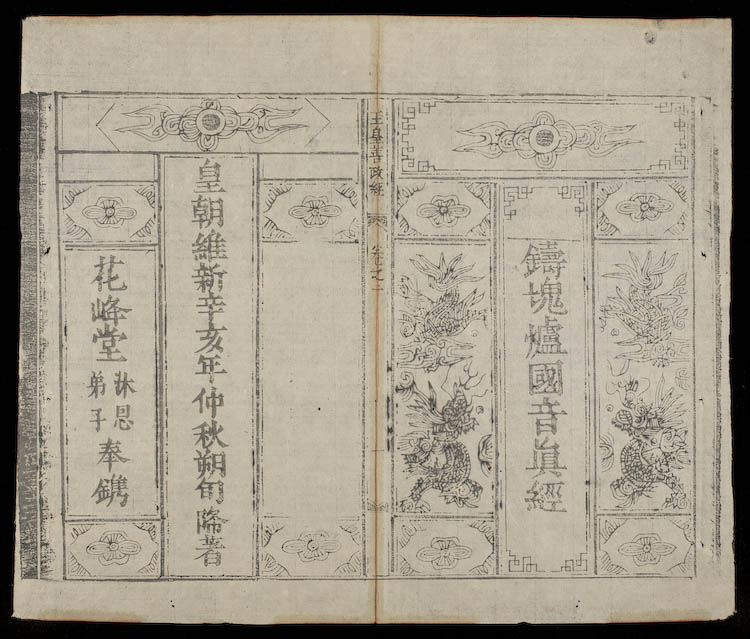 鑄塊爐國音眞經
玉皇善政經 卷之一
一
皇朝維新辛亥年仲秋朔旬降著
花峰堂沐恩弟子奉鐫